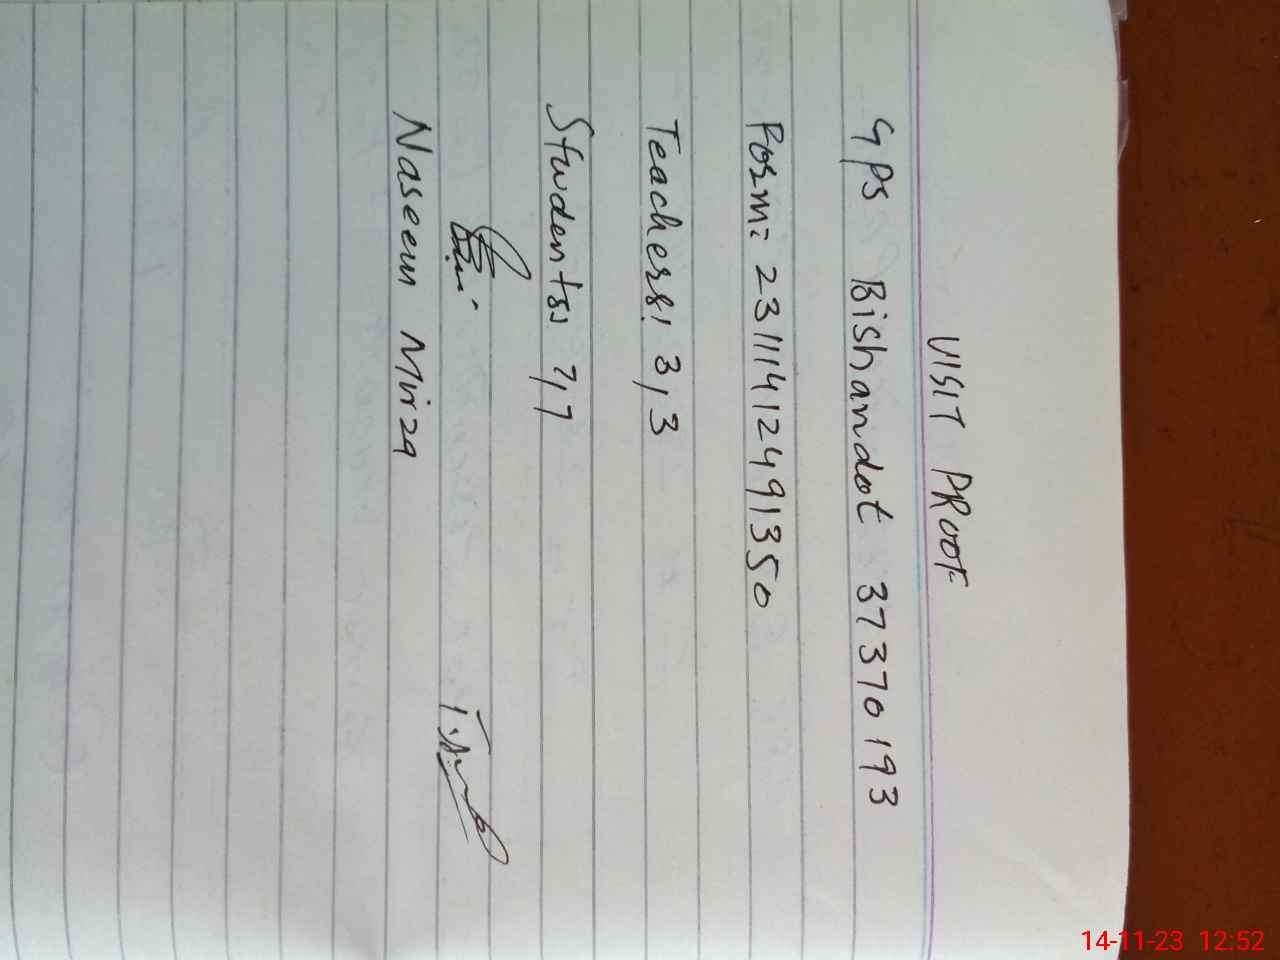 VISIT PROOF
GPS Bishandot 37370193
Form: 23111412491350
Teachers: 3,3
Students: 7,7
Naseem Mirza
14-11-23 12:52